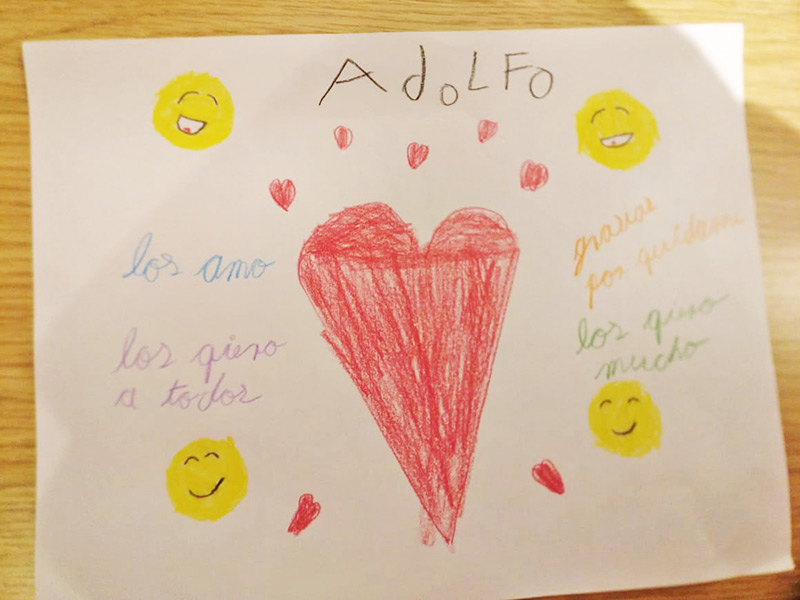 AdoLFo
los amo
los qiero
a todos
gracias
por quidarme
los qiero
mucho